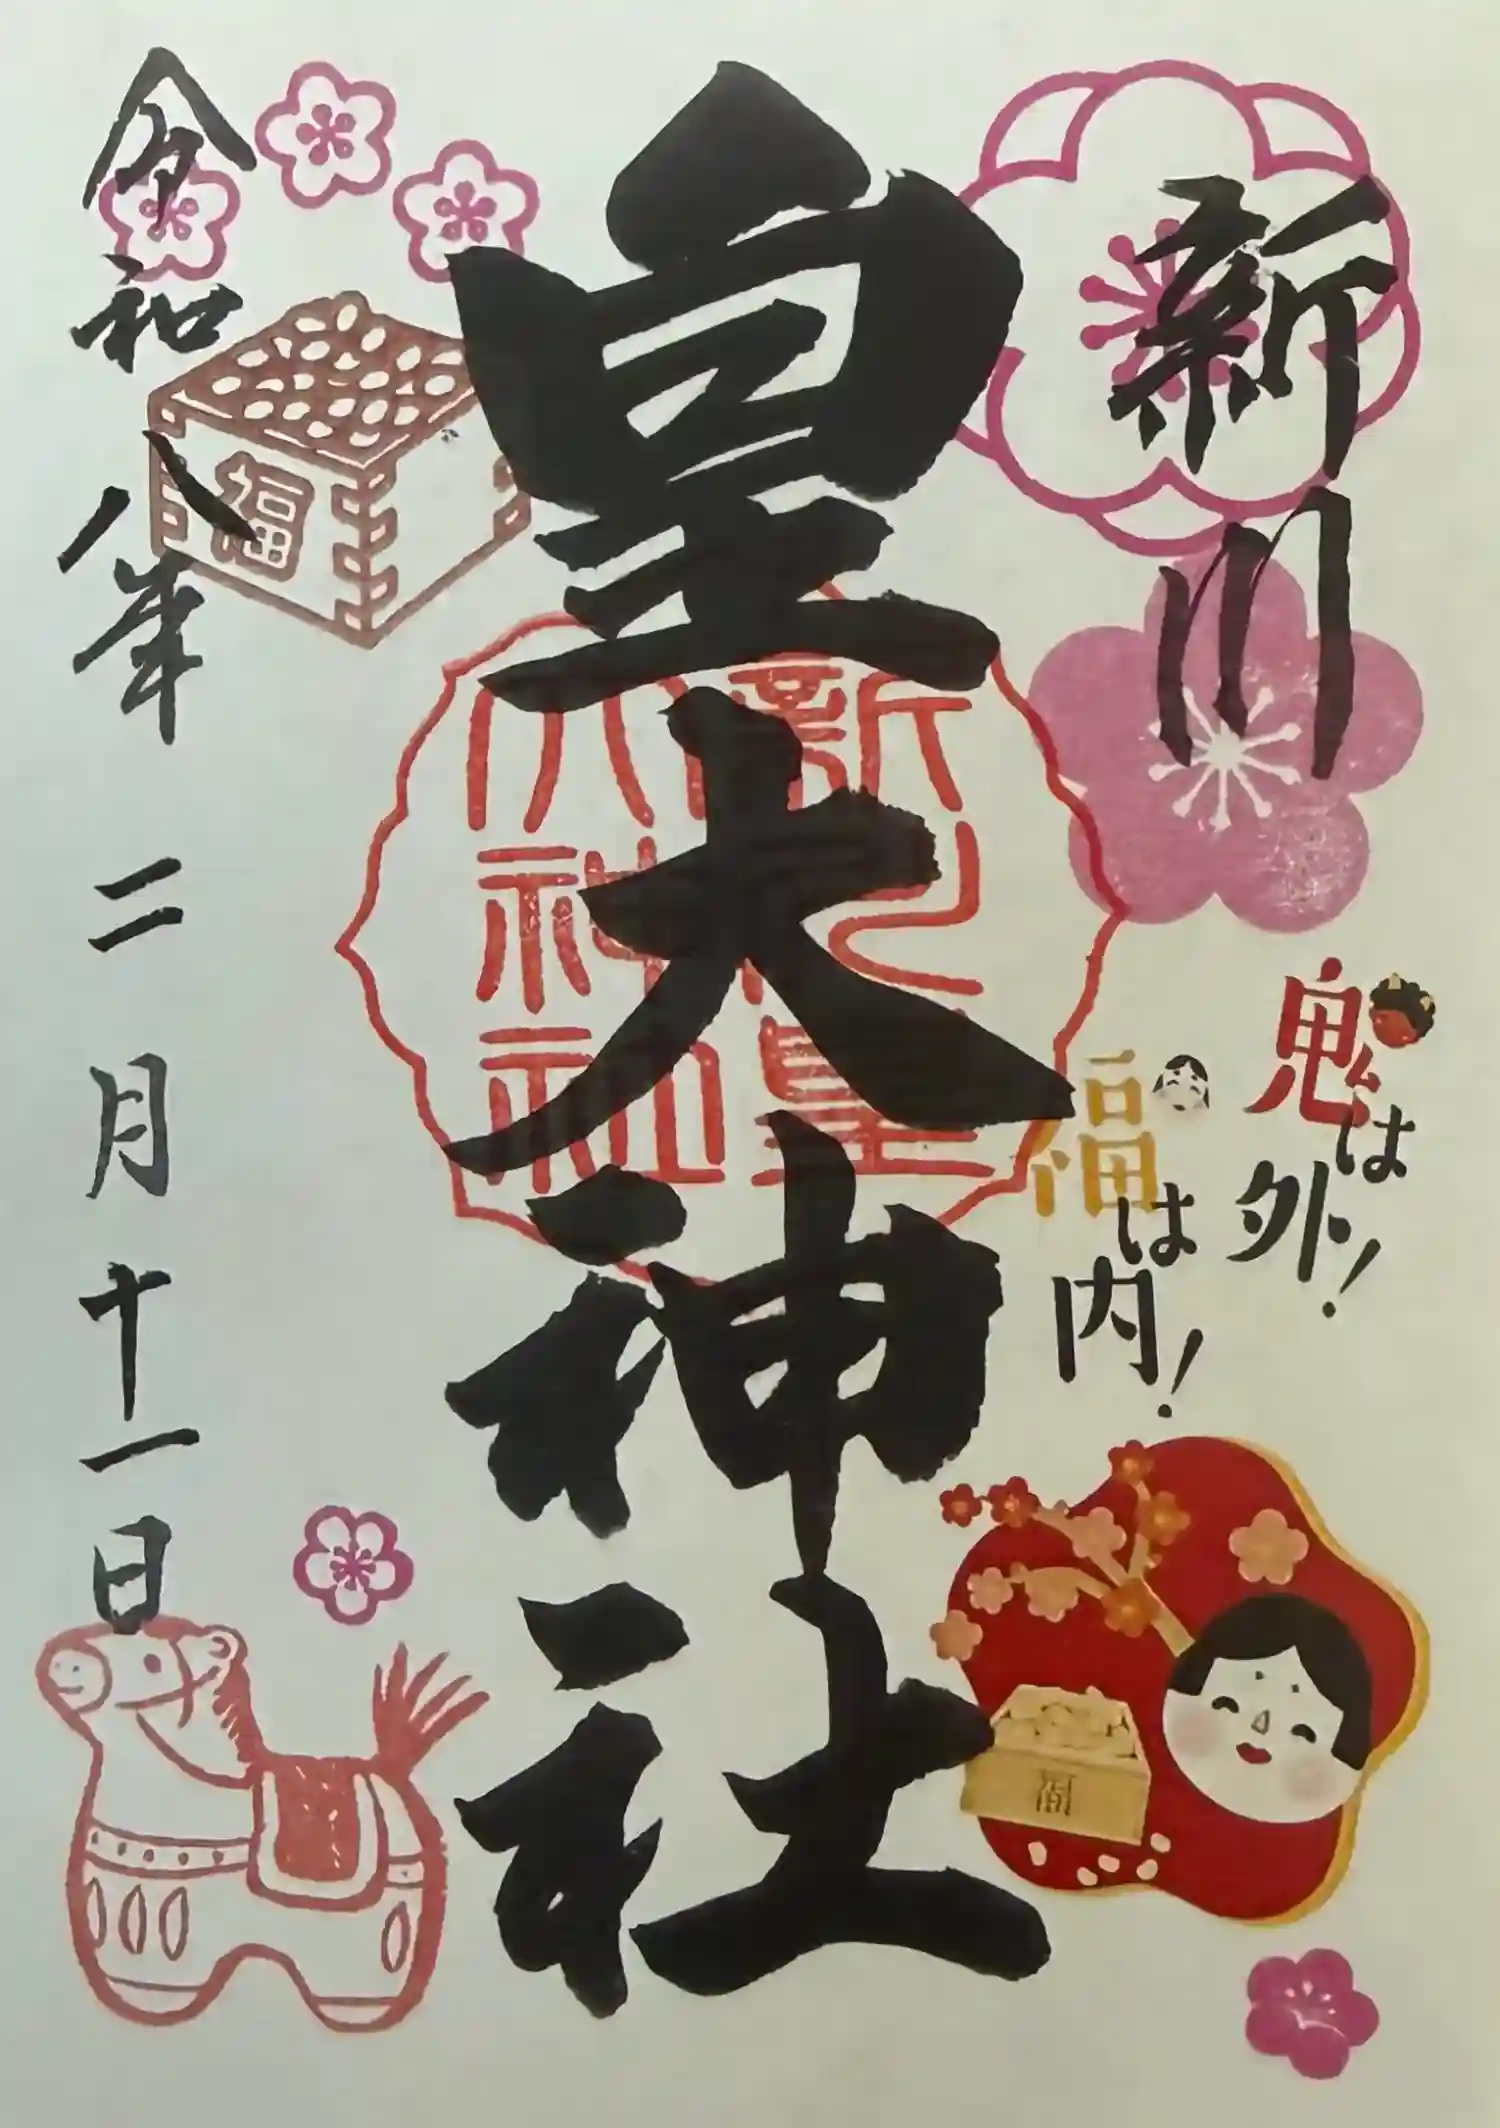 新川
皇大神社
令和八年二月十一日
鬼は外!
福は内!
福
新川皇大神社
福